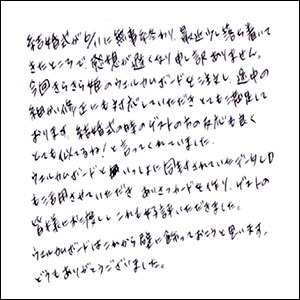 結婚式が5/11に無事終わり、最近少し落ち着いて
きたところで、感想が遅くなり申し訳ありません。
今回きらきら姫のウェルカムボードを注文し、途中の
細かい修正にも対応していただきとても満足して
おります。結婚式の時のゲストの方の反応も良く
とても似てるね!と言ってくれていました。
ウェルカムボードと いっしょに同封されていた
も活用させていただき、あいさつカードを作り、ゲストの
皆様にお渡しし これも好評いただきました。
ウェルカムボードはこれから壁に飾っておこうと思います。
どうもありがとうございました。